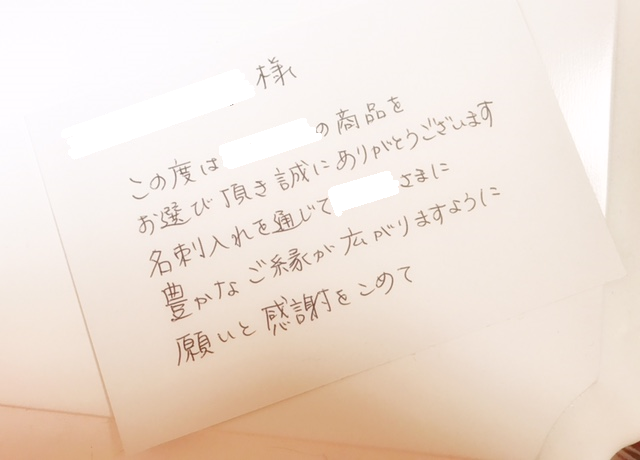 様
この度は の商品を
お選び頂き誠にありがとうございます
名刺入れを通じて さまに
豊かなご縁が広がりますように
願いと感謝をこめて